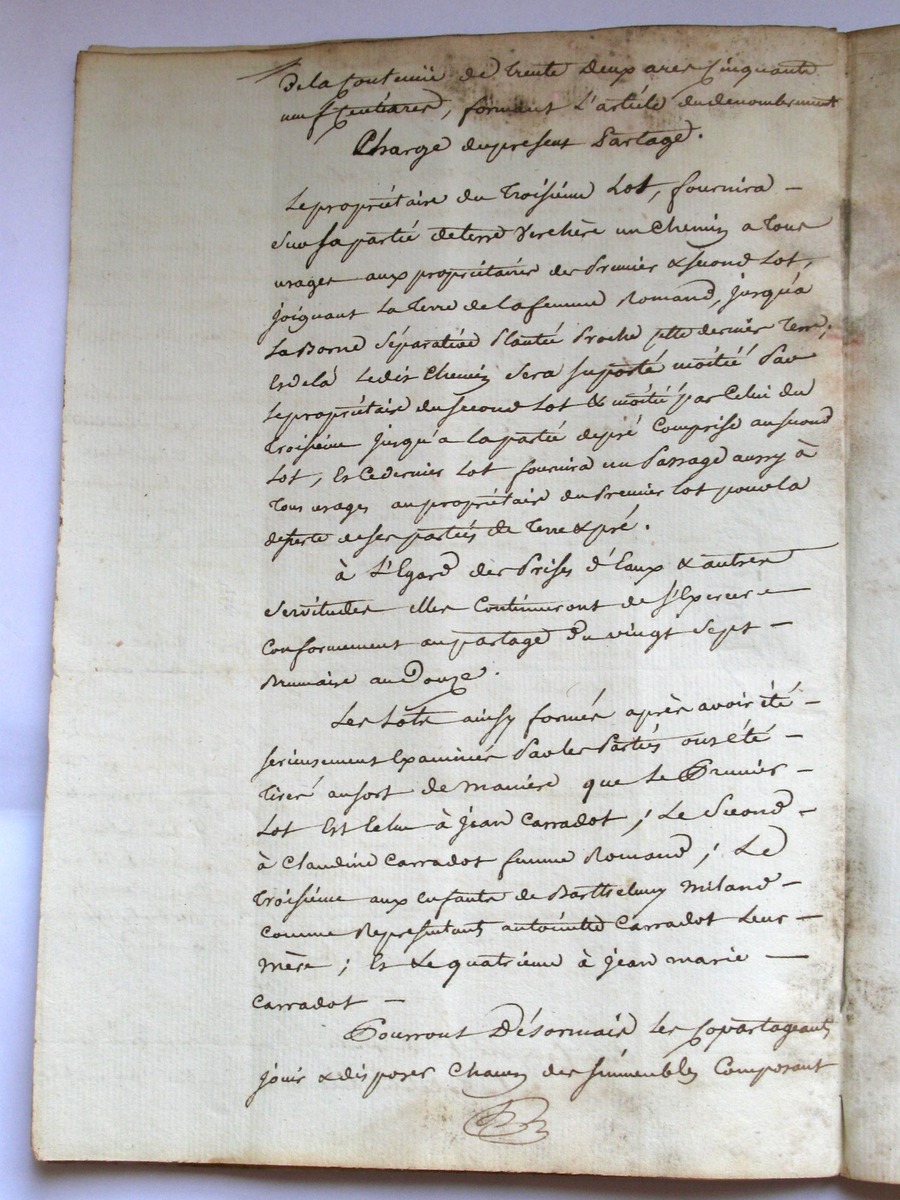 De la Contenüe de trente deux ares Cinquante
neuf Centiares, formant L'article du denombrement
Charge du present Partage.
Le propriétaire du troisiéme Lot, fournira –
Sur sa partie de terre Verchère un Chemin a tous
usages aux propriétaires des Premier & second Lot,
joignant La Terre de la femme Romand, jusqu'à
La Borne Séparative Plantée Proche cette derniere Terre;
Et de là Ledit Chemin Sera suporté moitié Par
Le propriétaire du second Lot & moitié par Celui du
troisiéme jusqu'a la partie de pré Comprise au second
Lot, Et Ce dernier Lot fournira un Passage aussy à
tous usages au propriétaire du Premier lot pour la
deserte de ses parties de Terre & pré.
à L'Egard des Prises d'Eaux & autres
Servitudes elles Continueront de s'Exercer
Conformement au partage du vingt Sept –
Brumaire an Douze.
Les Lots ainsy formés après avoir été –
serieusement Examinés Par les Parties ont été –
tirés au sort de maniere que Le Premier –
Lot Est Echu à jean Carradot; Le Second –
à Claudine Carradot femme Romand; Le
troisiéme aux enfants de Barthelemy Miland –
comme Representants antoinette Carradot Leur –
mère; Et Le quatriéme à jean marie —
Carradot –
Pourront Désormais les Copartageants
jouir & disposer Chacun des immeubles Composant